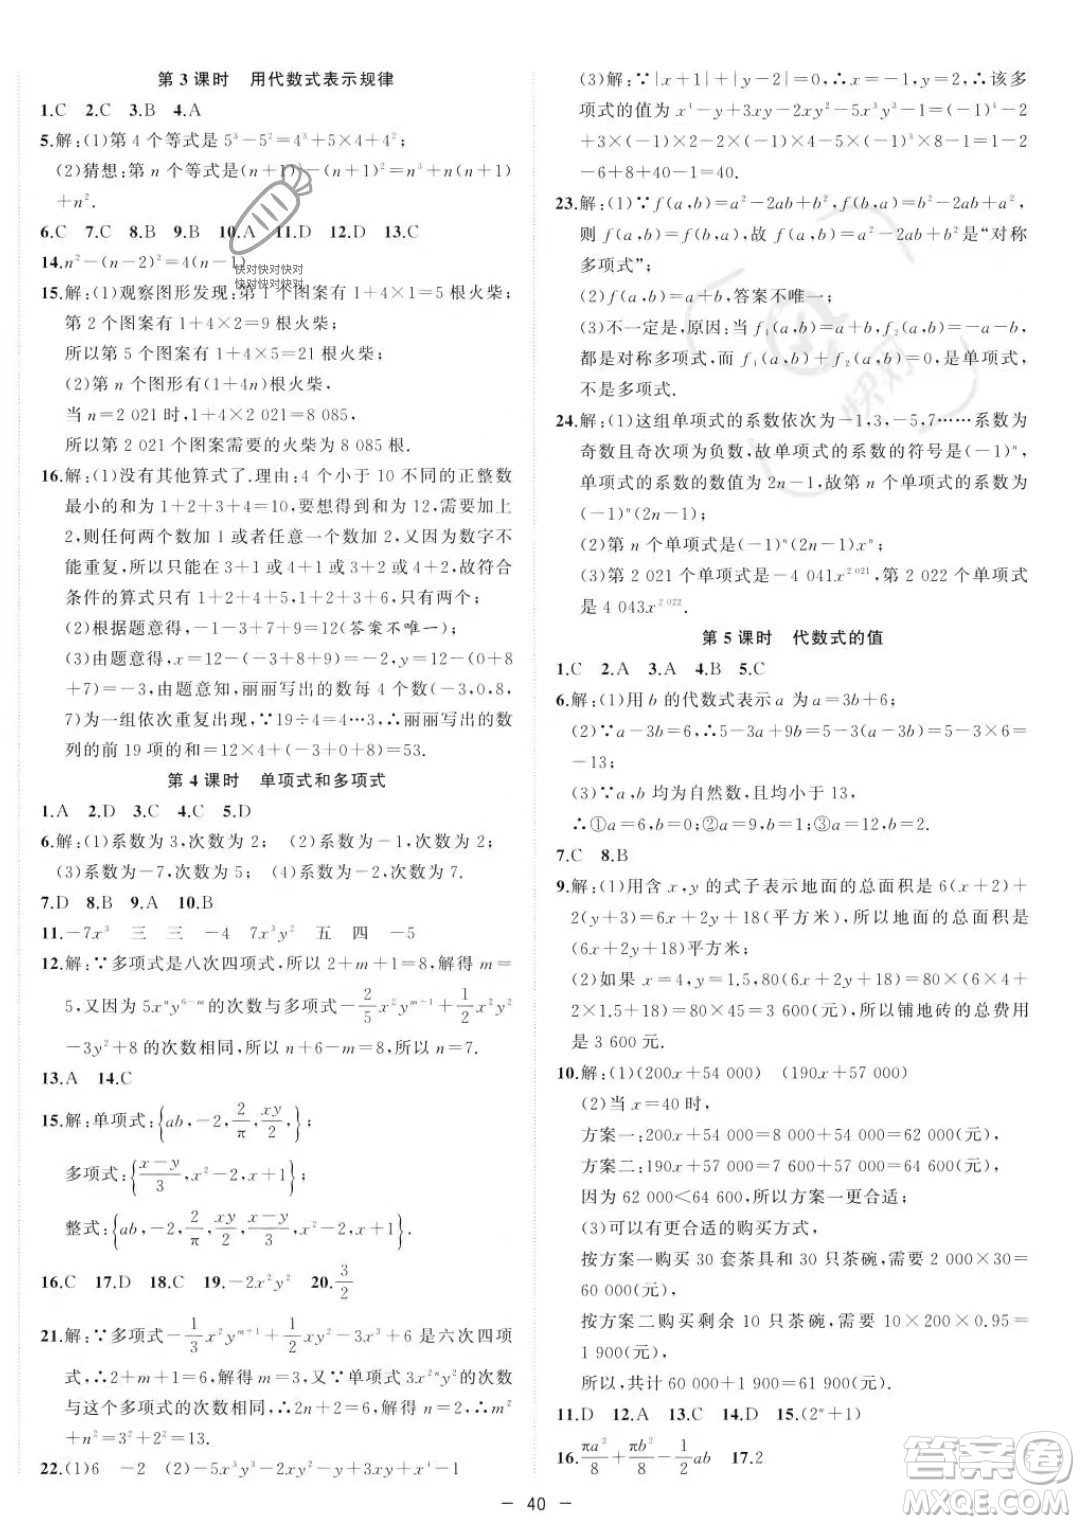 第3课时 用代数式表示规律
1.C 2.C 3.B 4.A
5.解:(1)第 4 个等式是 5³－5²＝4³＋5×4＋4²;
(2)猜想:第 n 个等式是(n＋1)³－(n＋1)²＝n³＋n(n＋1)
＋n².
6.C 7.C 8.B 9.B 10.A 11.D 12.D 13.C
14.n²－(n－2)²＝4(n－1)
15.解:(1)观察图形发现:第 1 个图案有 1＋4×1＝5 根火柴;
第 2 个图案有 1＋4×2＝9 根火柴;
所以第 5 个图案有 1＋4×5＝21 根火柴;
(2)第 n 个图形有(1＋4n)根火柴;
当 n＝2 021 时,1＋4×2 021＝8 085,
所以第 2 021 个图案需要的火柴为 8 085 根.
16.解:(1)没有其他算式了.理由:4 个小于 10 不同的正整数
最小的和为 1＋2＋3＋4＝10,要想得到和为 12,需要加上
2,则任何两个数加 1 或者任意一个数加 2,又因为数字不
能重复,所以只能在 3＋1 或 4＋1 或 4＋2,故符合
条件的算式只有 1＋2＋3＋6 和 1＋2＋4＋5 两个;
(2)根据题意得,－1－3＋7＋9＝12(答案不唯一);
(3)由题意得,x＝12－(－3)－8－0＝7,y＝12－7－8－0
＝－3,由题意知,丽丽写出的数每 4 个数－3,8,0,7
为一组依次重复出现,∵19÷4＝4…3,∴丽丽写出的数
列的前 19 项的和＝12×4＋(－3＋0＋8)＝53.
第4课时 单项式和多项式
1.A 2.D 3.C 4.C 5.D
6.解:(1)系数为 3,次数为 2; (2)系数为－1,次数为 2;
(3)系数为－7,次数为 5; (4)系数为 2,次数为 7.
7.D 8.D 9.A 10.B
11.－7x³ 三 三 －4 7x³y² 五 四 －5
12.解:∵多项式是八次四项式,所以 2＋m＋1＝8,解得 m＝
5,又因为 5xⁿy⁶⁻ᵐ的次数与多项式－2/5x²yᵐ⁺¹＋1/2x²y²
－3y²＋8 的次数相同,所以 n＋6－m＝8,所以 n＝7.
13.A 14.C
15.解:单项式:{ab,－2,2/π,xy/2,};
多项式:{(x－y)/3,x²－2,x＋1};
整式:{ab,－2,2/π,xy/2,(x－y)/3,x²－2,x＋1}.
16.C 17.D 18.C 19.－2x²y² 20.3/2
21.解:∵多项式－1/3x²yᵐ⁺¹＋1/2xy²－3x³＋6 是六次四项
式,∴2＋m＋1＝6,∴m＝3,又∵单项式 3x²ⁿy²的次数
与这个多项式的次数相同,∴2n＋2＝6,∴n＝2,∴m²
＋n²＝3²＋2²＝13.
22.(1)6 －2 (2)－5x³y³－2xy²＋x⁴＋3xy＋x－1
(3)解:∵|x＋1|＋|y－2|＝0,∴x＝－1,y＝2,∴该多
项式的值为 x⁴－1＋3xy－2xy²－5x³y³＋x＝(－1)⁴－1
＋3×(－1)×2－2×(－1)×4－5×(－1)³×8－1＝1－1
－6＋8＋40－1＝40.
23.解:(1)∵f(a,b)＝a²－2ab＋b²,f(b,a)＝b²－2ab＋a²,
则 f(a,b)＝f(b,a),故 f(a,b)＝a²－2ab＋b²是“对称
多项式”;
(2)f(a,b)＝a＋b,答案不唯一;
(3)不一定是,原因:当 f₁(a,b)＝a＋b,f₂(a,b)＝－a－b,
都是对称多项式,而 f₁(a,b)＋f₂(a,b)＝0,是单项式,
不是多项式.
24.解:(1)这组单项式的系数依次为－1,3,－5,7……系数为
奇数且奇次项为负数,故单项式的系数的符号是(－1)ⁿ,
单项式的系数的数值为 2n－1,故第 n 个单项式的系数为
(－1)ⁿ(2n－1);
(2)第 n 个单项式是(－1)ⁿ(2n－1)xⁿ;
(3)第 2 021 个单项式是－4 041x² ⁰²¹,第 2 022 个单项式
是 4 043x² ⁰²².
第5课时 代数式的值
1.C 2.A 3.A 4.B 5.C
6.解:(1)用 b 的代数式表示 a 为 a＝3b＋6;
(2)∵a－3b＝6,∴5－3a＋9b＝5－3(a－3b)＝5－3×6＝
－13;
(3)∵a,b 均为自然数,且均小于 13,
∴①a＝6,b＝0;②a＝9,b＝1;③a＝12,b＝2.
7.C 8.B
9.解:(1)用含 x,y 的式子表示地面的总面积是 6(x＋2)＋
2(y＋3)＝6x＋2y＋18(平方米),所以地面的总面积是
(6x＋2y＋18)平方米;
(2)如果 x＝4,y＝1.5,80(6x＋2y＋18)＝80×(6×4＋
2×1.5＋18)＝80×45＝3 600(元),所以铺地砖的总费用
是 3 600 元.
10.解:(1)(200x＋54 000) (190x＋57 000)
(2)当 x＝40 时,
方案一:200x＋54 000＝8 000＋54 000＝62 000(元),
方案二:190x＋57 000＝7 600＋57 000＝64 600(元),
因为 62 000＜64 600,所以方案一更合适;
(3)可以有更合适的购买方式,
按方案一购买 30 套茶具和 30 只茶碗,需要 2 000×30＝
60 000(元),
按方案二购买剩余 10 只茶碗,需要 10×200×0.95＝
1 900(元),
所以,共计 60 000＋1 900＝61 900(元).
11.D 12.A 13.C 14.D 15.(2ⁿ＋1)
16.πa²/8＋πb²/8－1/2ab 17.2
－ 40 －
快对快对快对
快对快对快对
快对
答案圈
MXQE.COM